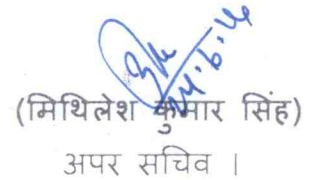 (मिथिलेश कुमार सिंह)
अपर सचिव ।